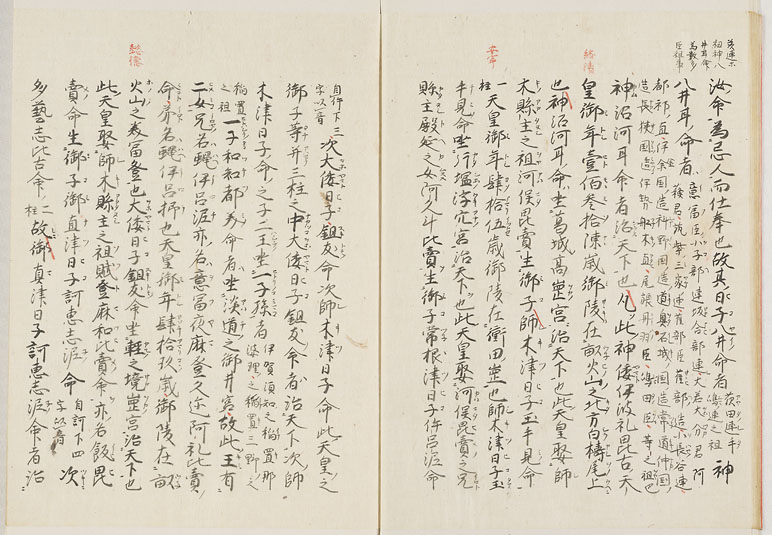 汝命為忌人而仕奉也故其日子八井命者
茨田連手
嶋連之祖
神
八井耳命者
意冨臣小子部連坂合部連大君大分君阿
蘇君筑紫三家連雀部臣雀部造小長谷連
都祁直伊余国造科野国造道奥石城国造常道仲国
造長狭国造伊勢舩木直尾張丹羽臣嶋田臣等之祖也
神沼河耳命者治天下也凡此神倭伊波礼毘古天
皇御年壹佰參拾漆歳御陵在畝火山之北方白檮尾上
也神沼河耳命坐葛城髙崗宮治天下也此天皇娶師
木縣主之祖河俣毘賣生御子師木津日子玉手見命
一柱
天皇御年肆拾伍歳御陵在衝田崗也師木津日子玉
手見命坐片塩浮穴宮治天下也此天皇娶河俣毘賣之兄
縣主殿延之女阿久斗比賣生御子常根津日子伊呂泥命
綏靖
安寧
自伊下三
字以音
次大倭日子鉏友命次師木津日子命此天皇之
御子等并三柱之中大倭日子鉏友命者治天下次師
木津日子命之子二王坐一子孫者
伊賀須知之稲置那
婆理之稲置三野之
稲置之祖
一子和知都美命者坐淡道之御井宮故此王有
二女兄名蝿伊呂泥亦名意冨夜麻登久迩阿礼比賣
命弟名蝿伊呂抒也天皇御年肆拾玖歳御陵在畝
火山之美冨登也大倭日子鉏友命坐軽之境崗宮治天下也
此天皇娶師木縣主之祖賦登麻和比賣命亦名飯毘
賣命生御子御真津日子訶恵志泥命
自訶下四
字以音
次
多藝志比古命
二柱
故御真津日子訶恵志泥命者治
懿徳